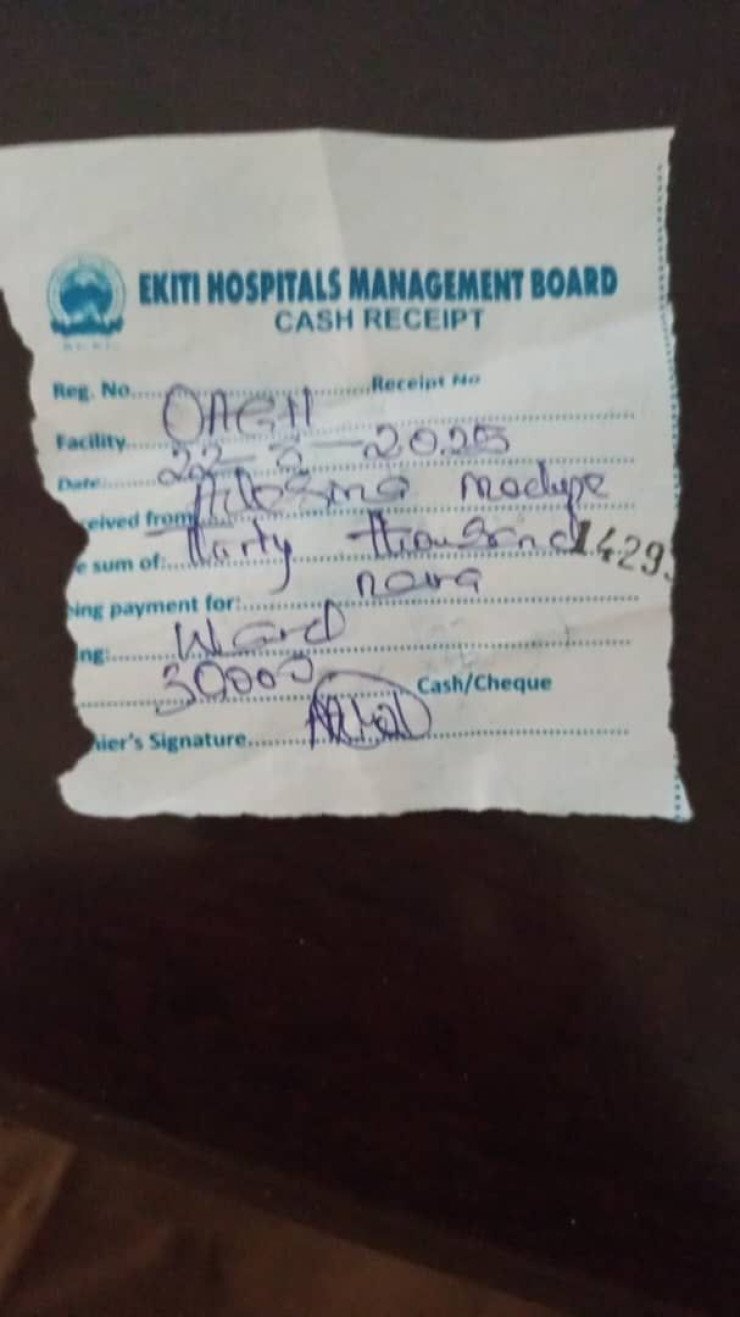 EKITI HOSPITALS MANAGEMENT BOARD
CASH RECEIPT
Reg. No. Receipt No
OAGH
Facility
22 - 2 - 2025
Date
modupe
ceived from
thirty thousand 1429
e sum of:
naira
ing payment for:
Ward
ng:
30000
Cash/Cheque
hier's Signature